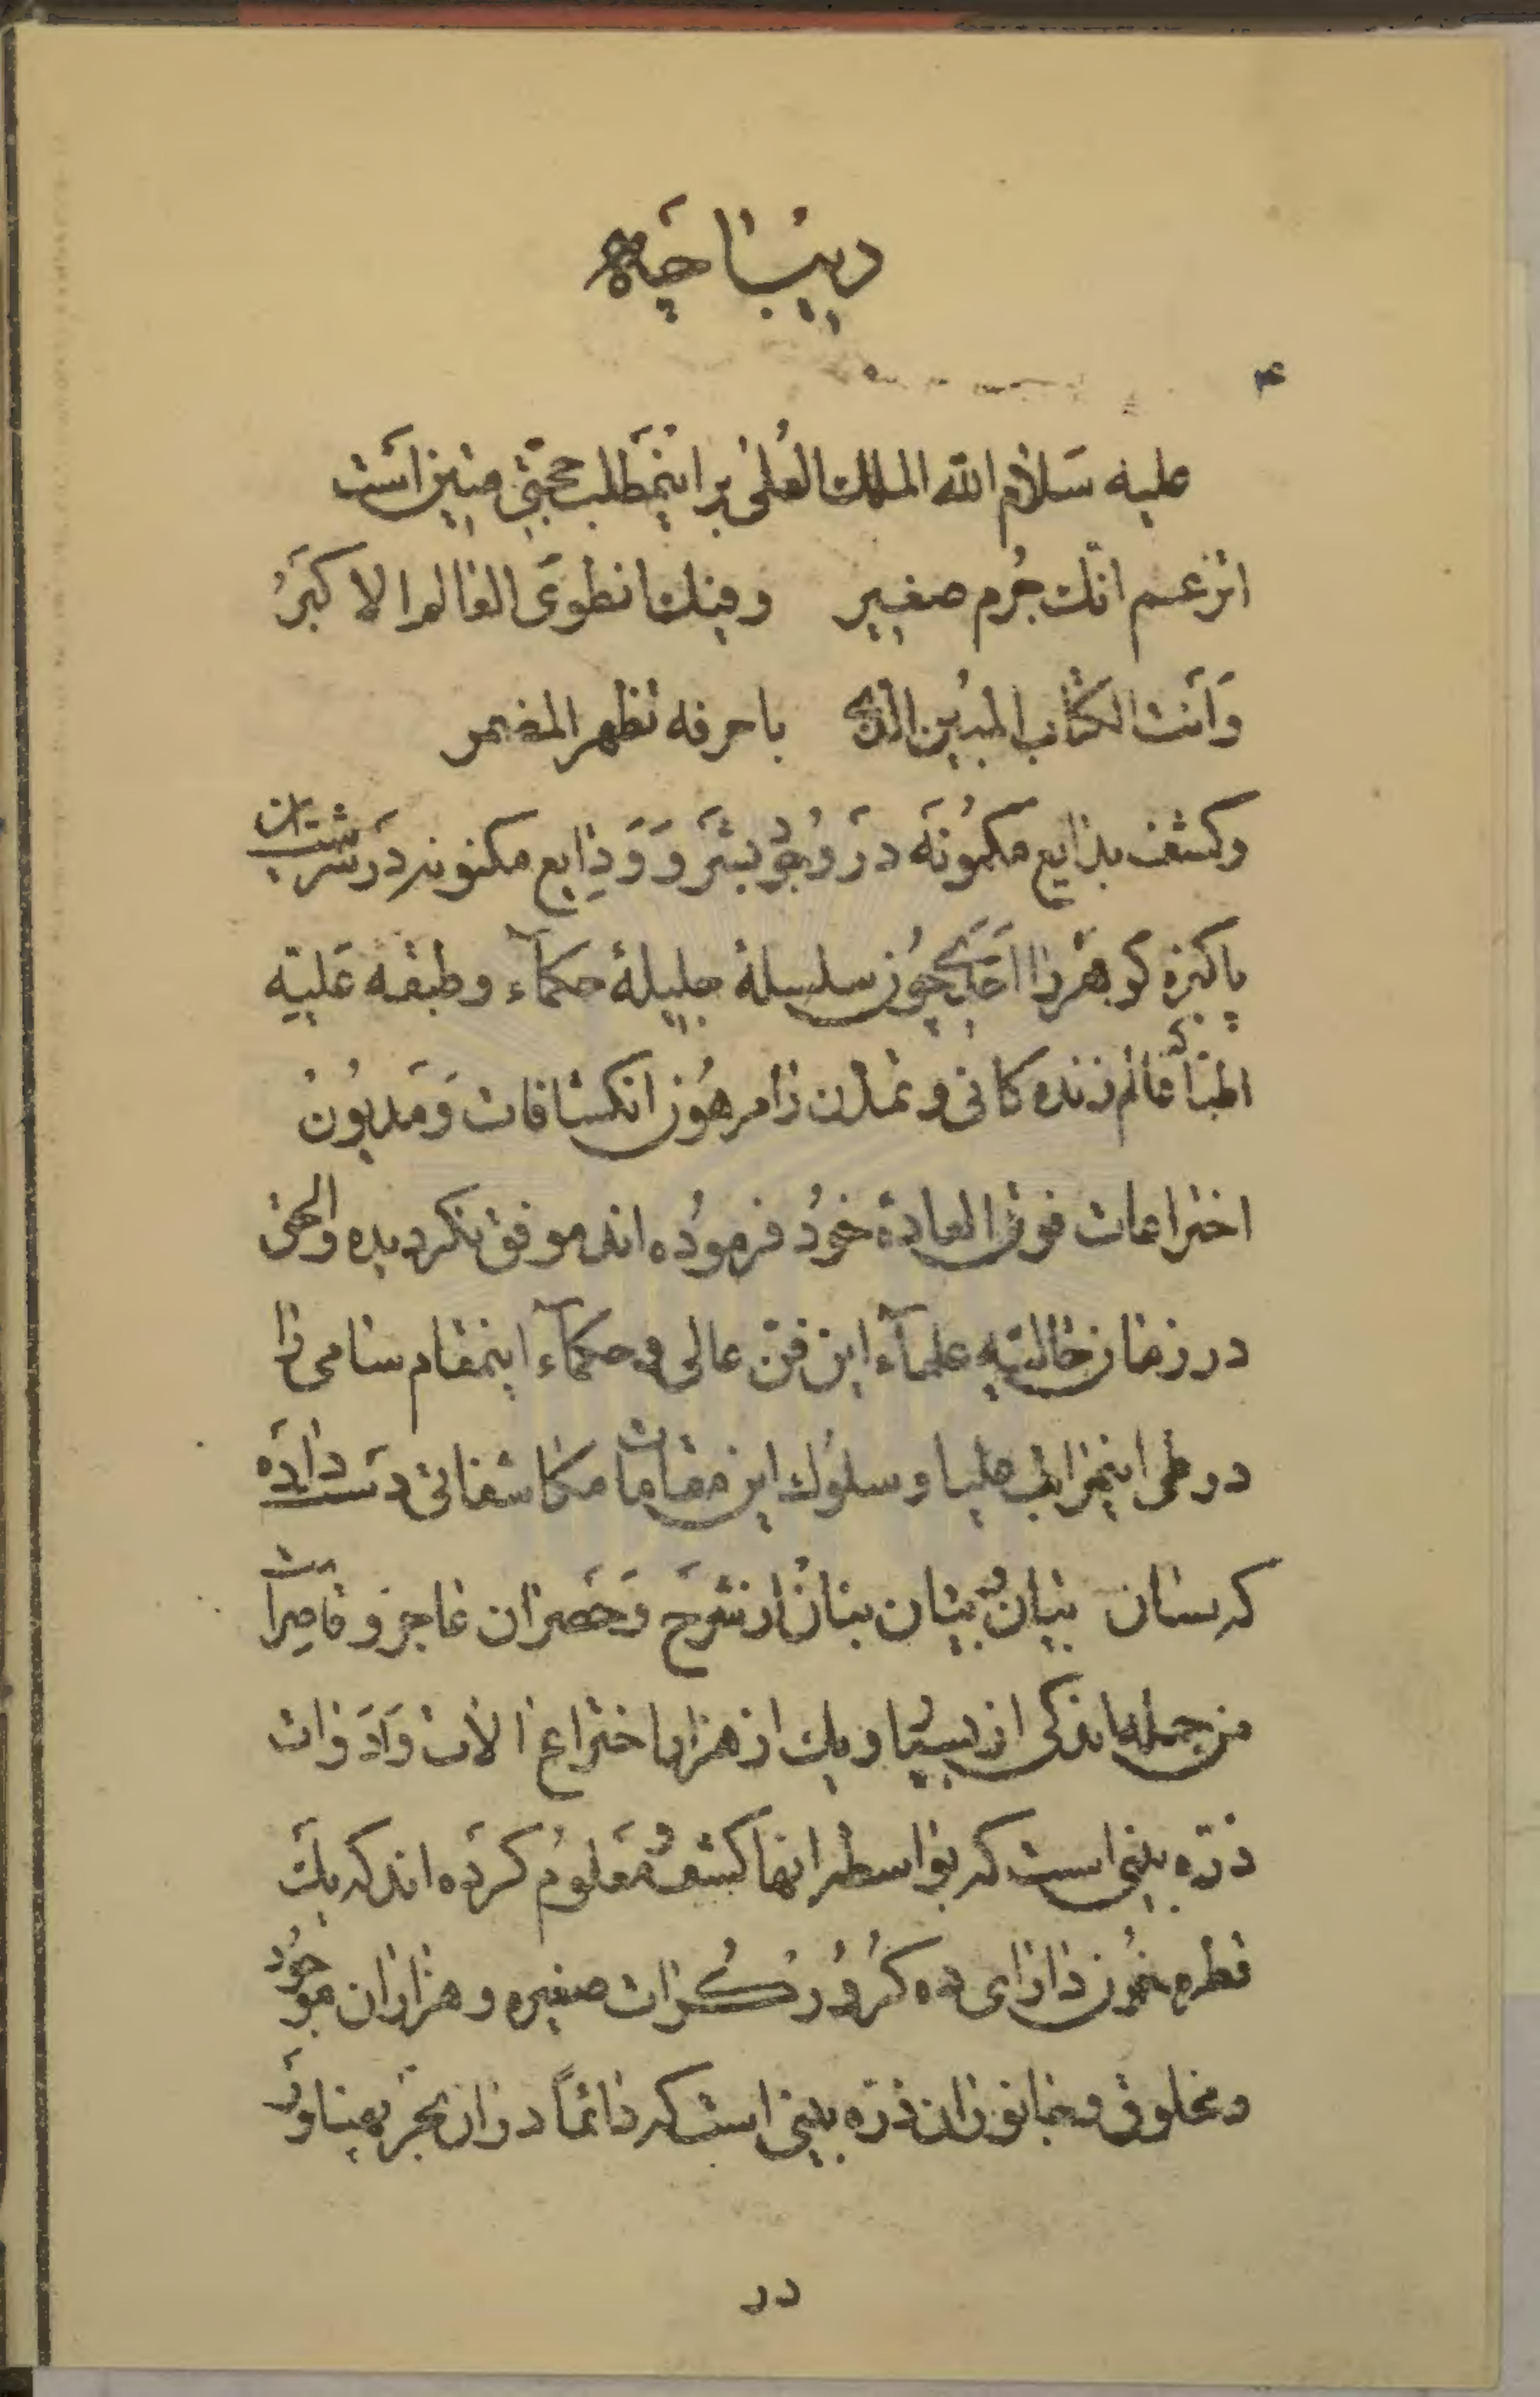 دیباچه
۴
علیه سَلام الله الملك العُلیٰ بر اینمَطلب حجّتی مبین اسَت
اتزعم انّك جُرم صغییر وفیك انطوَی العالم الاکبَرُ
وَاَنت الکتاب المُبین الذی باحرفه تظهر المضمر
وکشف بدایع مکمُونَه دَر وُجُود بشَر وَ وَدایع مکنونه دَر سَرشت ان
پاکیزه کوهَر را اَحَدی چوُن سلسلهٔ جلیلهٔ حکمآء وطبقه عَلیّه
اطبّا که عالم زنده کانی و تمدّن را مرهُون انکشافات وَمَدیُونُ
اختراعات فوق العادهٔ خوُد فرموُده اند موفق نکردیده والحق
در زمان حالیّه علمآء این فنّ عالی و حکمآء اینمقام سامی را
در طی اینمراتب علیا و سلوُك این مقامات مکاشفاتی دَست دادَه
که لسان بیانُ و بیان بنانُ از شرَح وَحَصَر ان عاجز و قاصِر است
من جمله اندکی از بسیار و یك از هزار اختراع الات وَ اَدَوات
ذرّه بینی است که بواسطه انها کشف و مَعلوُم کردَه اند که یك
قطره خوُن دارای ده کُرُوُر کُرات صغیره و هزاران موجُود
و مخلوق و جانوران ذرّه بینی است که دائماً دران بَحر پهناور
در